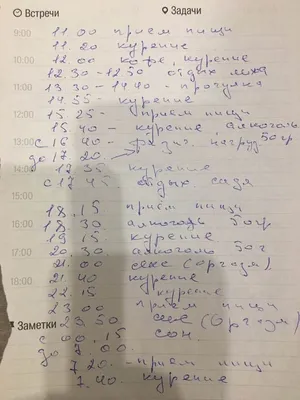 Встречи Задачи
9:00 11.00 прием пищи
11.20 курение
10:00 12.00 кофе, курение
12.30 - 12.50 отдых лежа
11:00 13.30 - 14.40 - прогулка
14.55 - курение
12:00 15.25 - прием пищи
15.40 - курение, алкоголь
50гр
13:00 с 16.40 - физич. нагруз.
до 17.20
14:00 курение
с 17.45 - отдых сидя
18.15 прием пищи
16:00 18.30 алкоголь 50гр
19.15 курение
17:00 20.30 алкоголь 50г
21.00 секс (оргазм)
18:00 21.40 курение
22.15 курение
23.00 прием пищи
Заметки 23.50 секс (оргазм)
с 00.15 сон
до 7.00
7.20 - прием пищи
7.40 курение